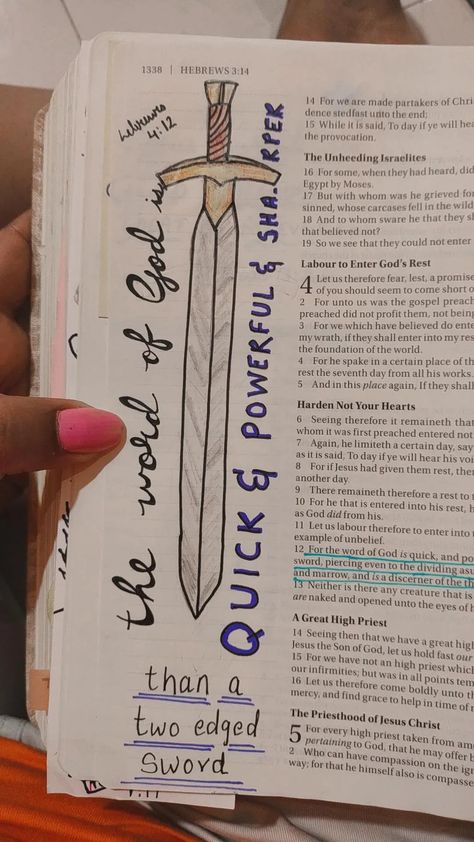 1338 | HEBREWS 3:14
hebrews
4:12
the word of God is
QUICK & POWERFUL & SHARPER
than a
two edged
sword
14 For we are made partakers of Chri
dence stedfast unto the end;
15 While it is said, To day if ye will hea
the provocation.
The Unheeding Israelites
16 For some, when they had heard, did
Egypt by Moses.
17 But with whom was he grieved for
sinned, whose carcases fell in the wild
18 And to whom sware he that they sh
that believed not?
19 So we see that they could not enter
Labour to Enter God's Rest
4 Let us therefore fear, lest, a promise
of you should seem to come short o
2 For unto us was the gospel preach
preached did not profit them, not being
3 For we which have believed do ente
my wrath, if they shall enter into my res
the foundation of the world.
4 For he spake in a certain place of th
rest the seventh day from all his works.
5 And in this place again, If they shall
Harden Not Your Hearts
6 Seeing therefore it remaineth that
whom it was first preached entered not
7 Again, he limiteth a certain day, say
as it is said, To day if ye will hear his voi
8 For if Jesus had given them rest, the
another day.
9 There remaineth therefore a rest to
10 For he that is entered into his rest, h
as God did from his.
11 Let us labour therefore to enter into
example of unbelief.
12 For the word of God is quick, and po
sword, piercing even to the dividing asu
and marrow, and is a discerner of the th
13 Neither is there any creature that is
are naked and opened unto the eyes of
A Great High Priest
14 Seeing then that we have a great high
Jesus the Son of God, let us hold fast our
15 For we have not an high priest which
our infirmities; but was in all points tem
16 Let us therefore come boldly unto t
mercy, and find grace to help in time of
The Priesthood of Jesus Christ
5 For every high priest taken from am
pertaining to God, that he may offer b
2 Who can have compassion on the ign
way; for that he himself also is compasse